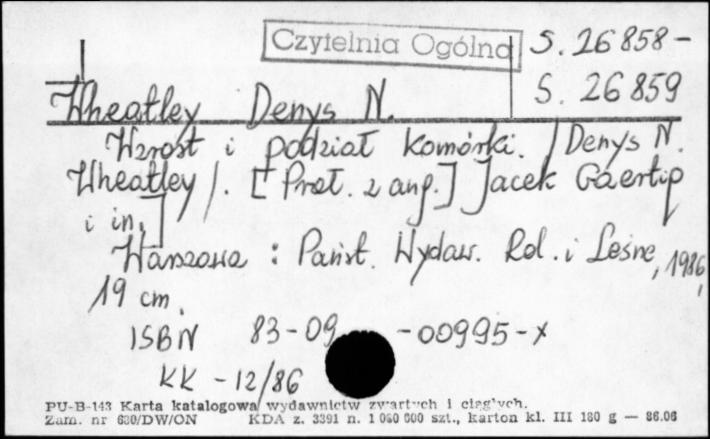 Czytelnia Ogólna S. 26858-
S. 26859
Wheatley Denys N.
Wzrost i podział komórki. / Denys N.
Wheatley /. [Przeł. z ang.] Jacek Gaertig
i in.]
Warszawa : Państ. Wydaw. Rol. i Leśne, 1986,
19 cm.
ISBN 83-09-00995-x
KK - 12/86
PU-B-143 Karta katalogowa wydawnictw zwartych i ciągłych.
Zam. nr 630/DW/ON KDA z. 3391 n. 1 000 000 szt., karton kl. III 180 g — 86.06